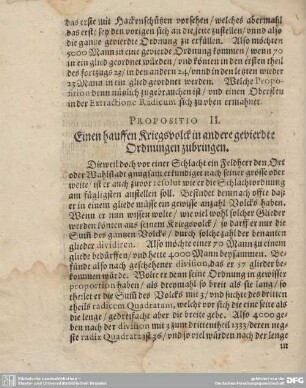 das erste mit Hackenschützen vorsehen / welches abermahl
das erst / sey den vorigen sich an die seite zustellen / vnnd also
die gantze gevierdte Ordnung zu erfüllen. Also möchten
5000 Mann in eine gevierdte Ordnung kommen / wenn 70
in ein glied geordnet würden / vnd können in den ersten theil
des fortzugs 23 / in den andern 24 / vnnd in den letzten wieder
23 Mann in ein glied geordnet werden. Welche Propor-
tition denn nützlich zugebrauchen ist / vnd einen Obersten
in der Extractione Radicum sich zu oben ermahnet.
PROPOSITIO II.
Einen hauffen Kriegsvolck in andere gevierdte
Ordnungen zubringen.
Dieweil doch vor einer Schlacht ein Feldherr den Ort
oder Wahlstadt gnugsam erkundiget nach seiner grösse oder
weite / ist er auch zuvor resolut wie er die Schlachtordnung
am fügligsten anstellen soll. Befindet demnach offte daß
er in einem gliede müsse ein gewisse anzahl Volcks haben.
Wenn er nun wissen wolte / wie viel wohl solcher Glieder
werden könten aus seinem Kriegsvolck / so darff er nur die
Summ des gantzen Volcks / durch solche zahl der benanten
glieder dividiren. Also möchte einer 70 Mann zu einem
gliede bedürffen / vnd hette 4000 Mann beysammen. Be-
fünde also nach geschehener division, das er 57 glieder be-
kommen würde. Wolte er denn seine Ordnung in gewisser
proportion haben / als dreomahl so breit als sie lang / so
theilet er die Summ des Volcks mit 3 / vnd suchet des dritten
theils radicem Quadratam, welche vor sich die eine seite als
die lenge / gedreyfacht aber die breite gebe. Also 4000 ge-
ben nach der division mit 3 zum drittentheil 1333 / deren neg-
ste radix Quadrata ist 36 / vnd so viel würden nach der lenge